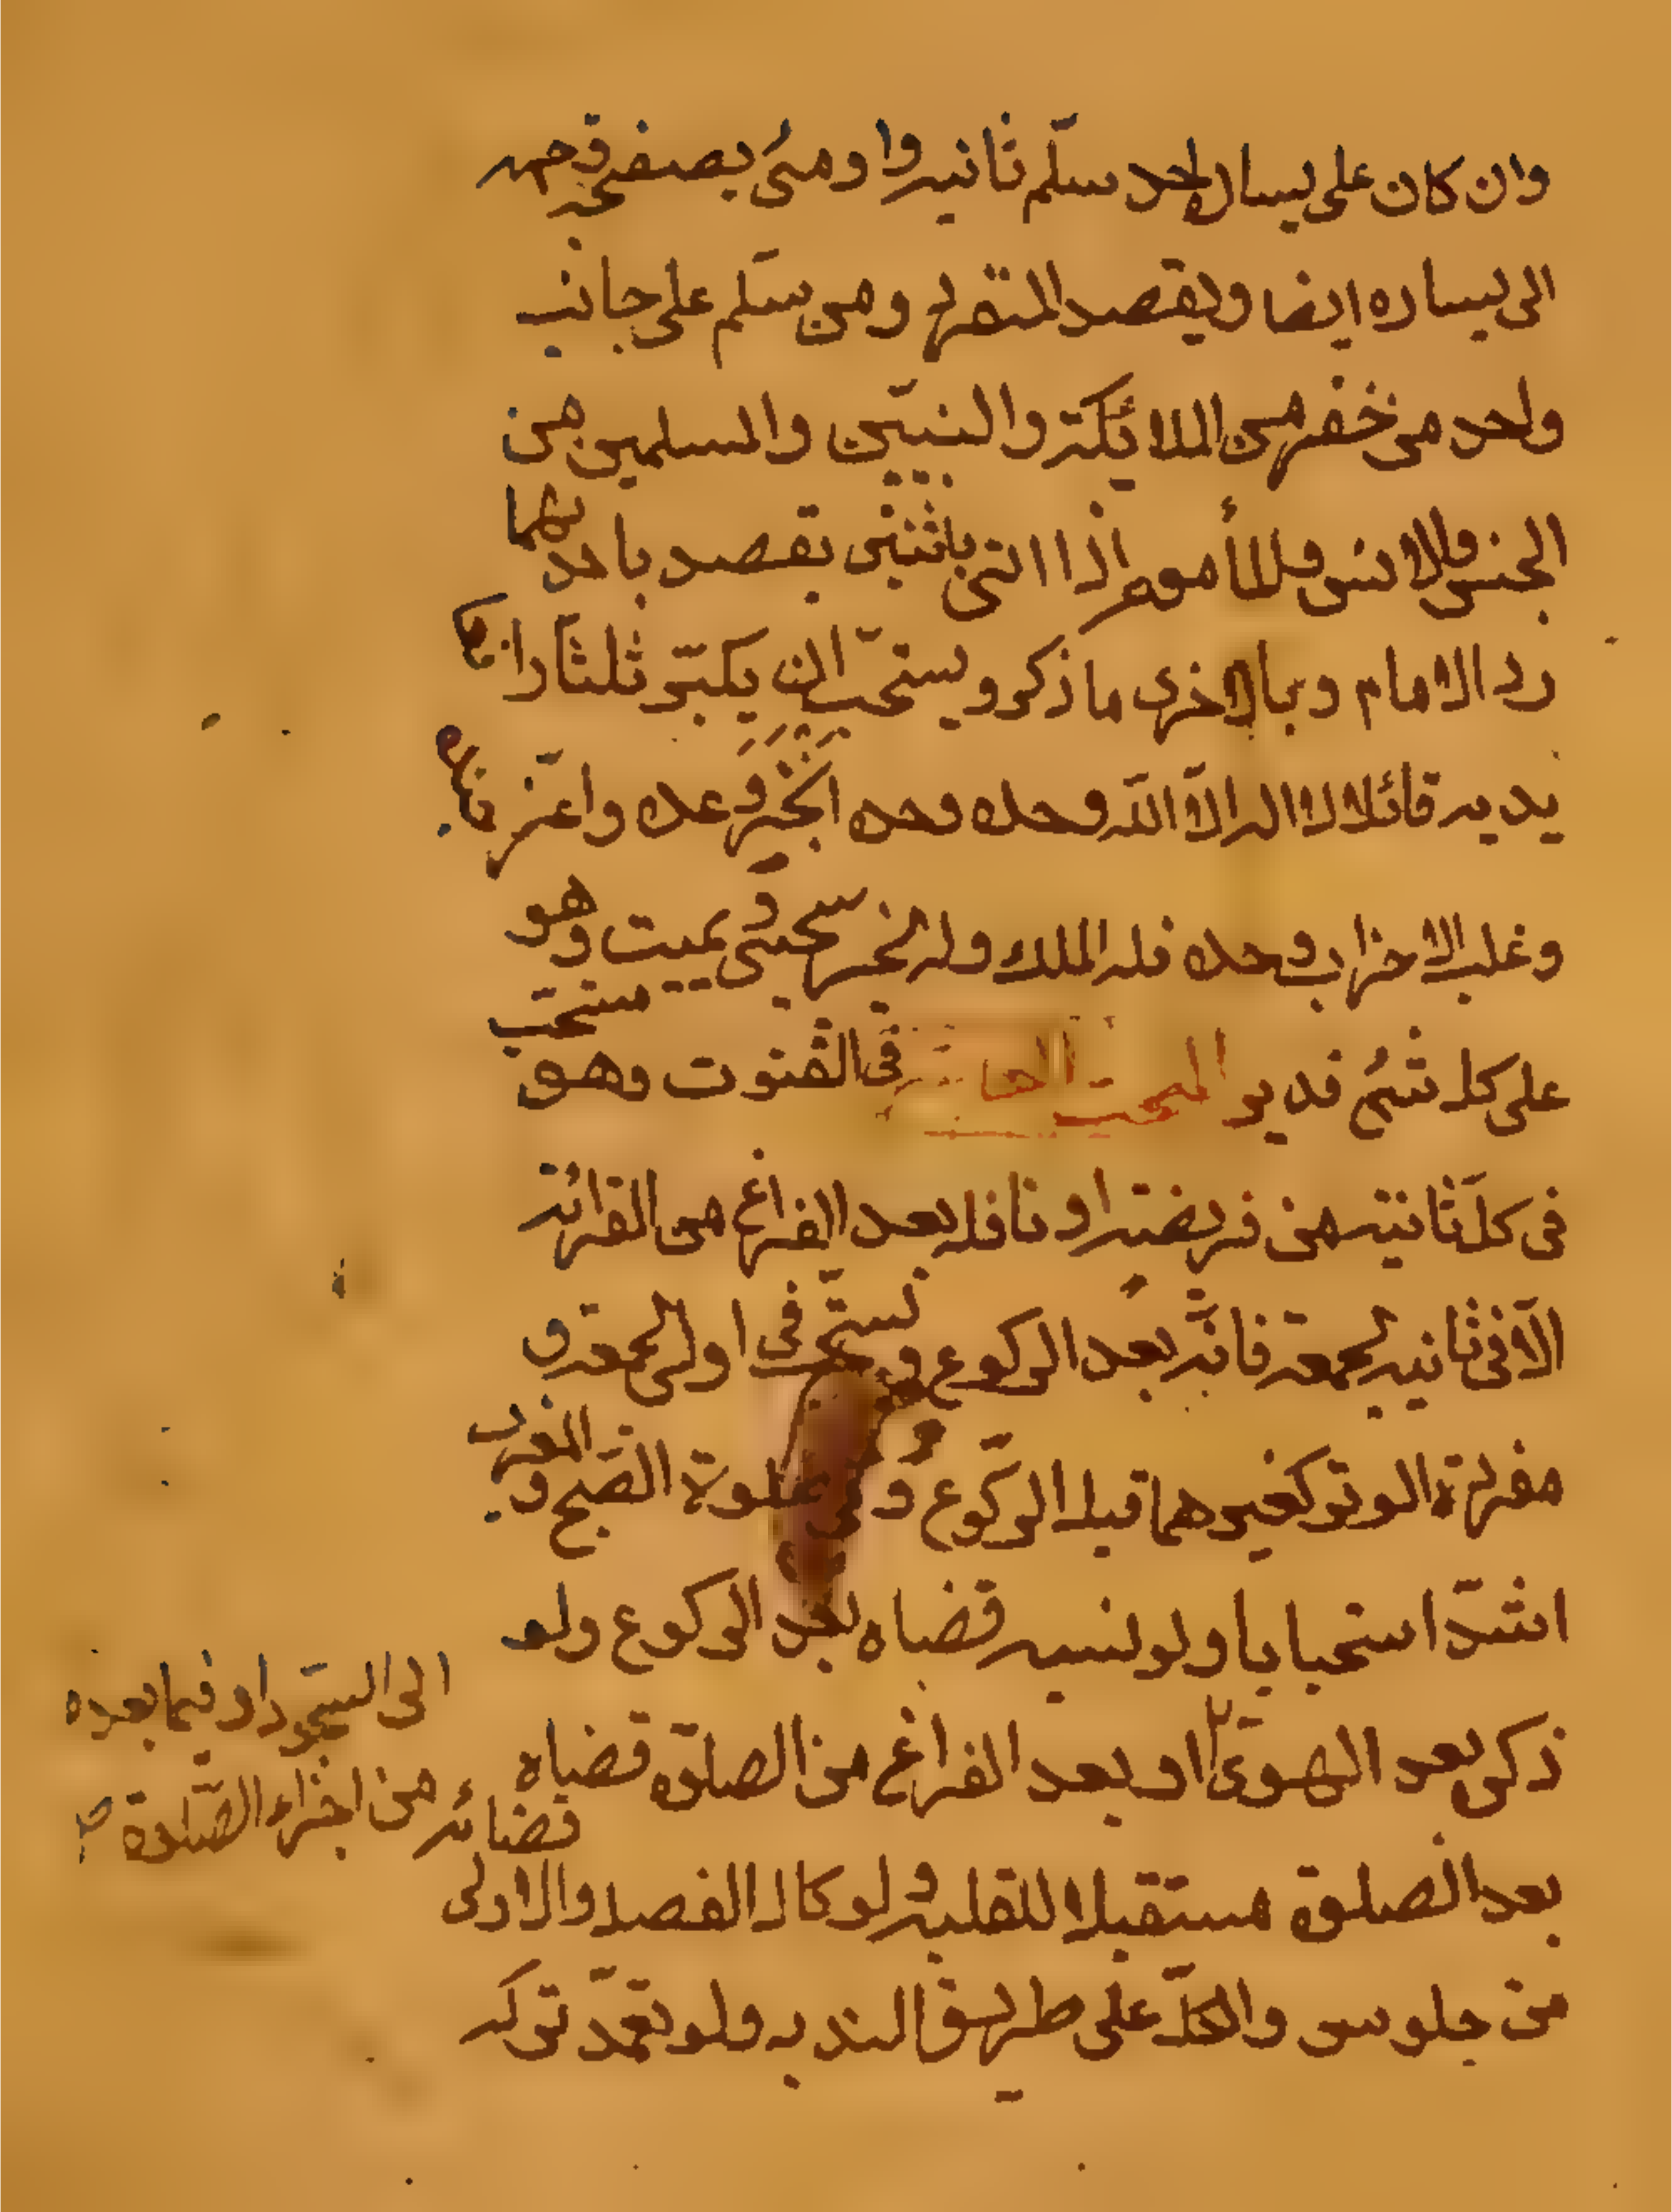 وان كان على يساره احد سلّم ثانيه واومئ بصفحة وجهه
الى يساره ايضا ويقصد المتقدم ومن سلم على جانب
واحد من خضرهم من الملائكة والنبيّين والمسلمين من
الجنس والانس وللمأموم اذا اتى باثنين يقصد باحدهما
رد الامام وبالاخرى ما ذكر ويستحبّ ان يكبّر ثلثا رافعا
يديه قائلا لا اله الاّ اللّه وحده وحده انجز وعده واعزّ
وغلب الاحزاب وحده فله الملك وله يحيى ويميت وهو
على كل شئ قدير المبحث في القنوت وهو مستحب
في كل ثانية من فريضة او نافله بعد الفراغ من القرائة
الاّ في ثانيه الجمعه فانّه بعد الركوع ويستحبّ في اولى الجمعة و
مفردة الوتر كغيرهما قبل الركوع وفي صلوة الصبح والمغرب
اشدّ استحبابا ولو نسيه قضاه بعد الركوع ولو
ذكر بعد الهوىّ او بعد الفراغ من الصلوة قضاه
الى السّجود او فيما بعده
من اجزاء الصّلوة صح
قضائه
بعد الصلوة مستقبلا للقبلة ولو كان الفصل والاولى
من جلوس والكلّ على طريق الندب ولو تعمّد تركه